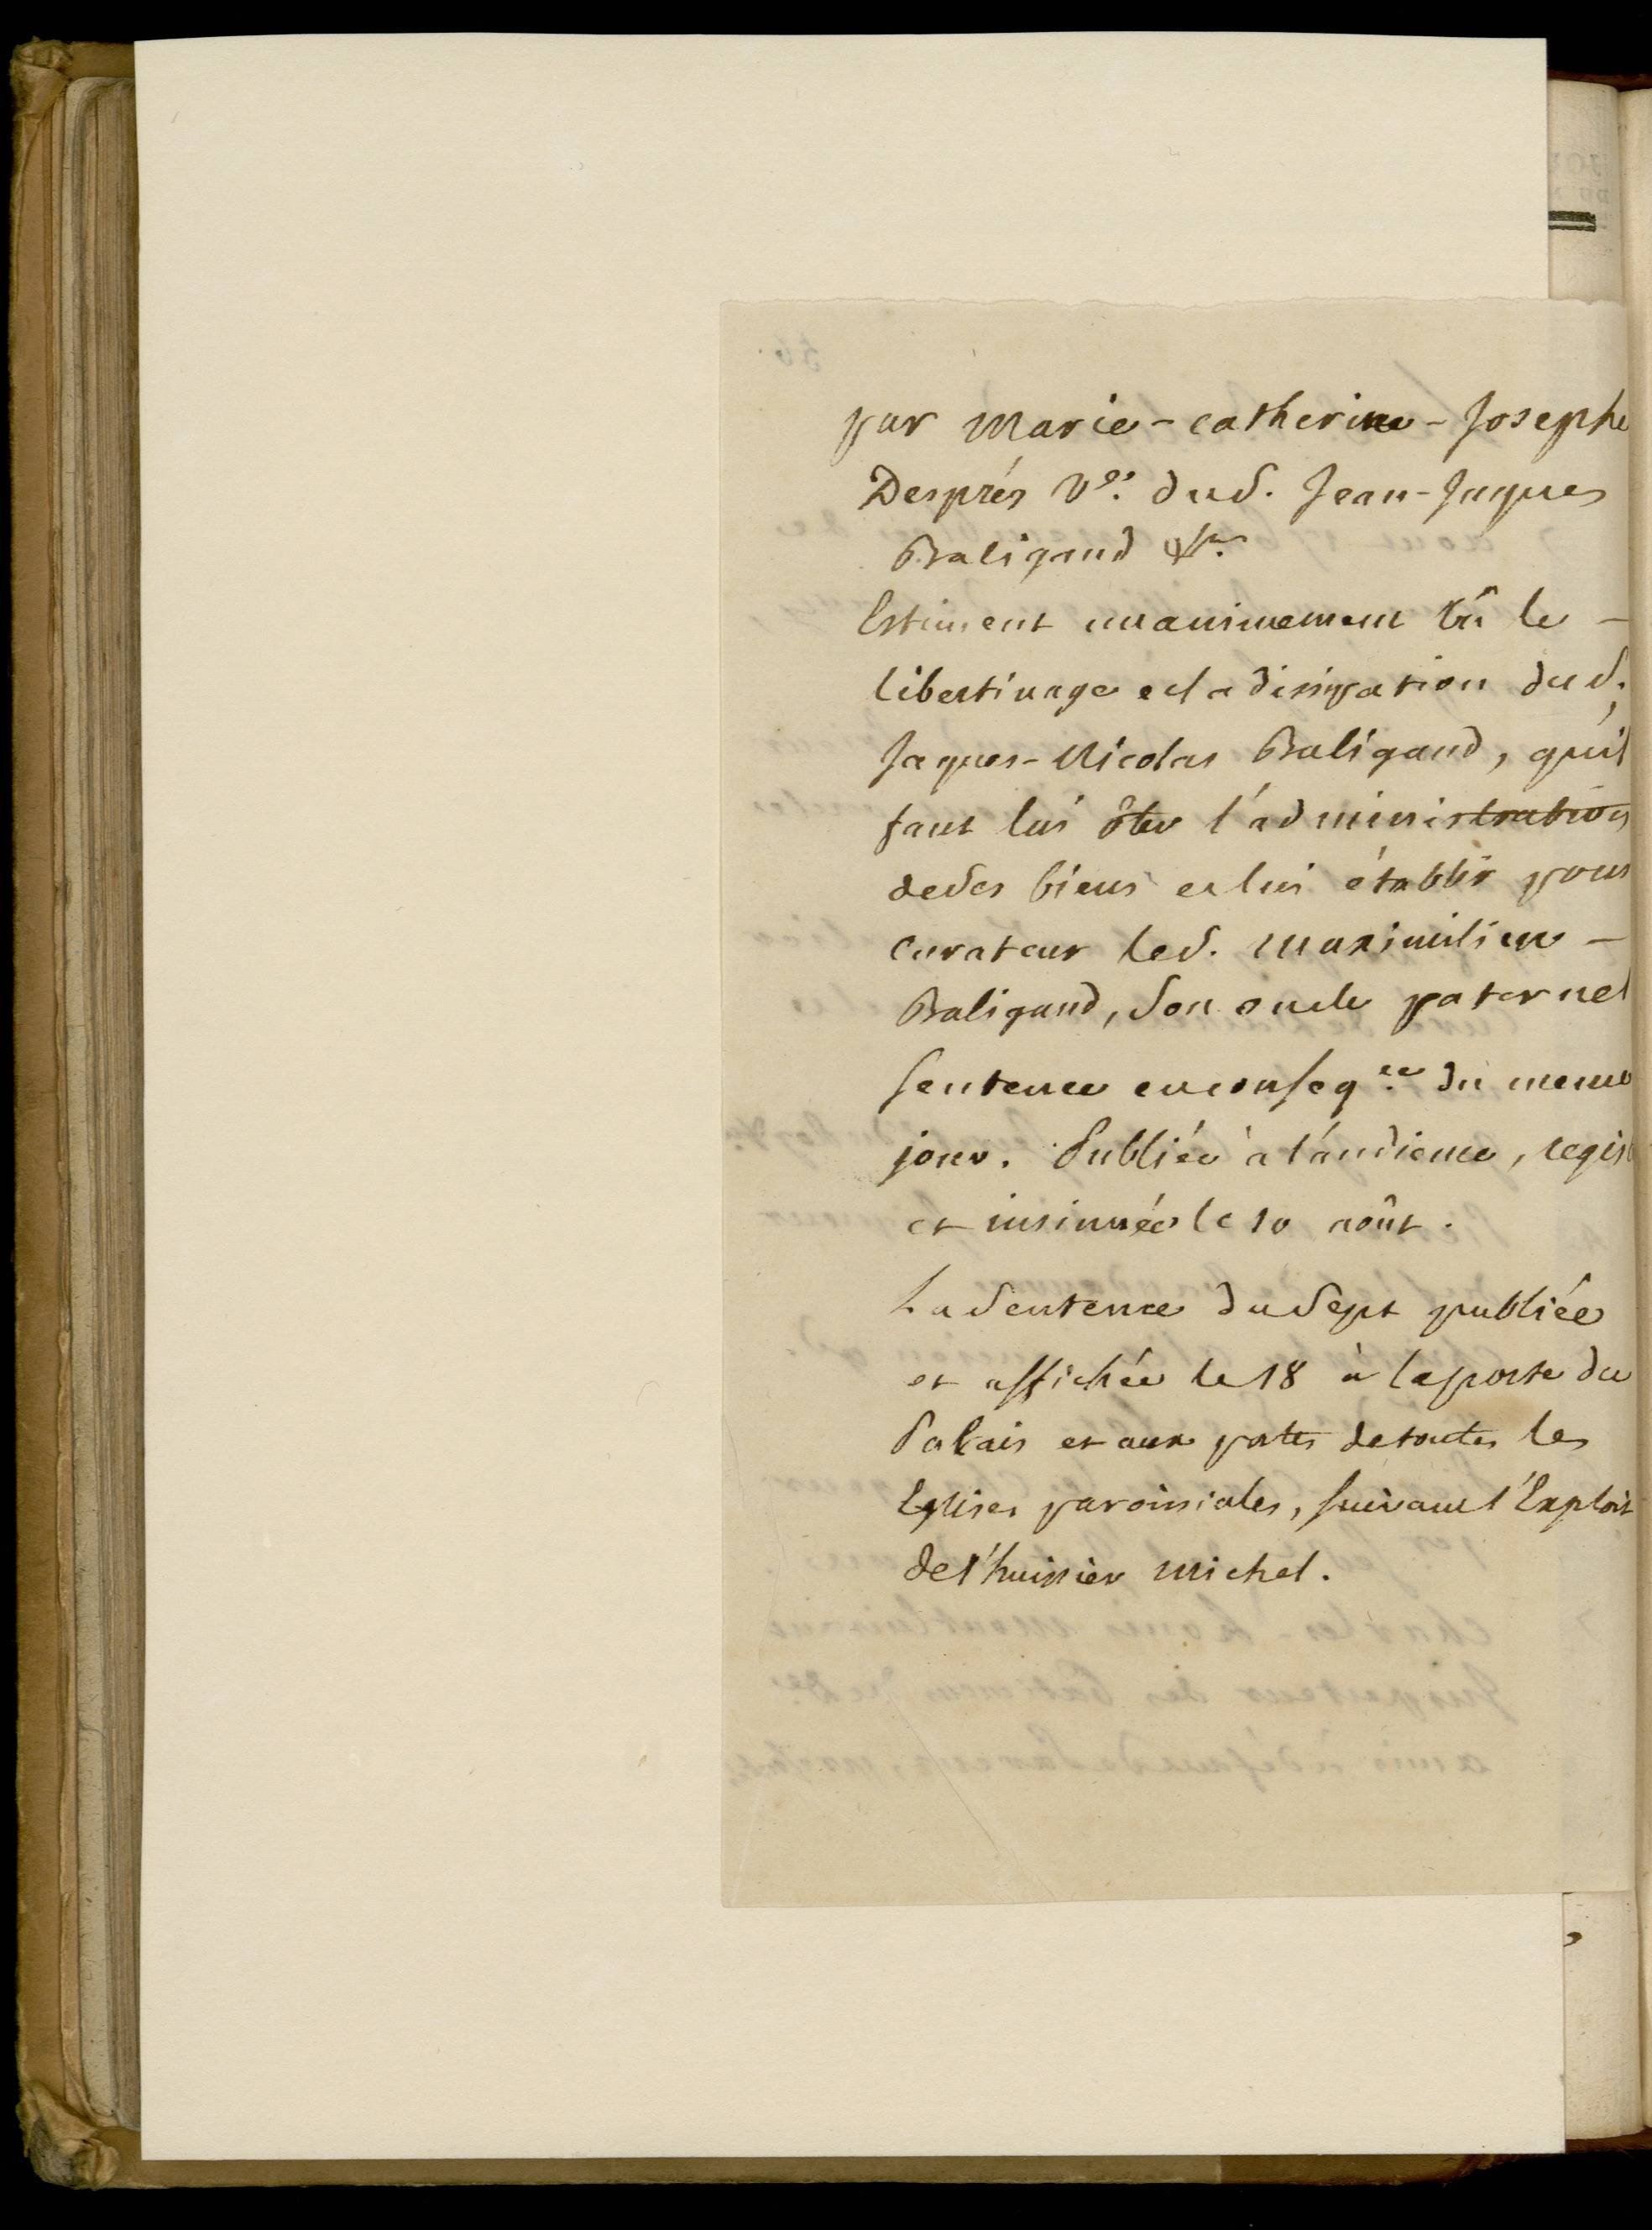 par Marie-catherine-Josephe
Desprès Ve. dud. Jean-Jaques
Baligand &c.
Estiment unanimement vû le -
libertinage et la dissipation dud.
Jaques-Nicolas Baligand, qu'il
faut lui ôter l'administration
de ses biens et lui établir pour
curateur led. Maximilien -
Baligand, son oncle paternel
Sentence en conseqce. du meme
jour. Publiée à l'audience, regis
et insinuée le 10 août.
La sentence du sept publiée
et affichée le 18 à la porte du
Palais et aux portes de toutes les
Eglises paroissiales, suivant l'Exploit
de l'huissier Michel.